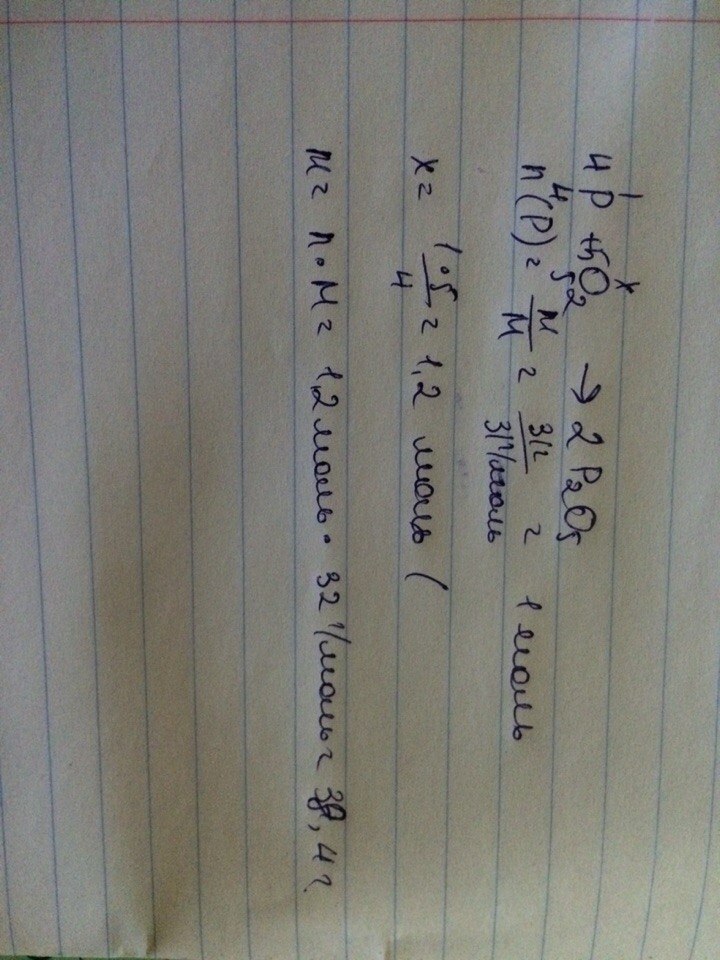 1 x
4P + 5O2 → 2P2O5
4 5
n(P) = m/M = 31г/31г/моль = 1 моль
x = 1·5/4 = 1,2 моль (
m = n · M = 1,2 моль · 32 г/моль = 38,4 г